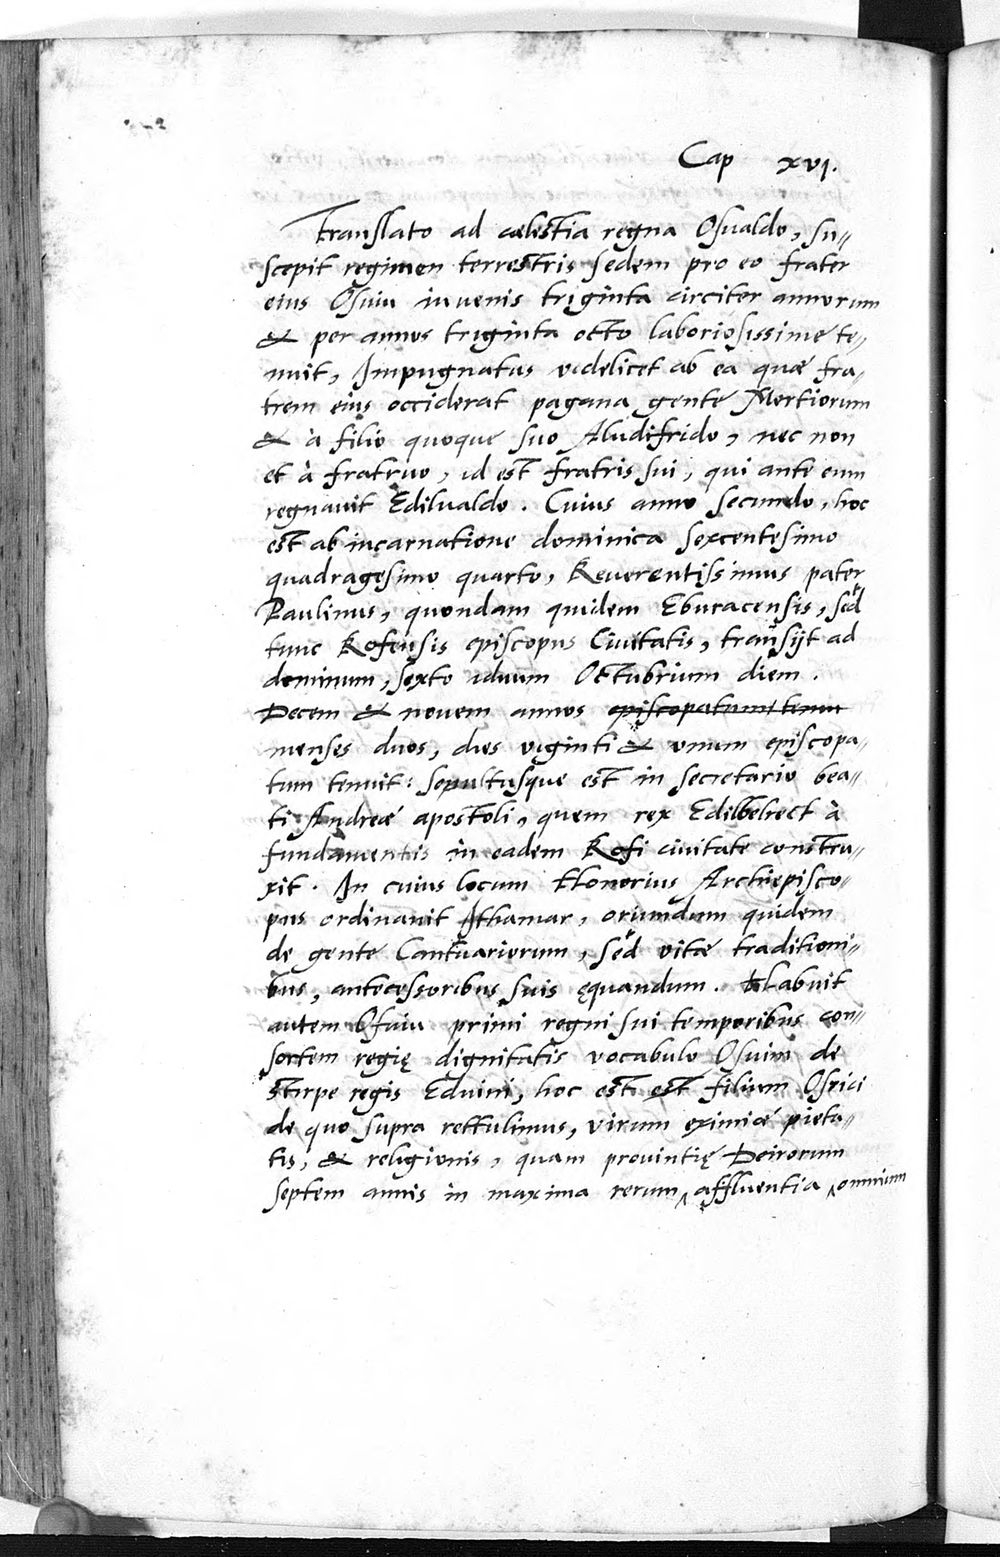 Cap xvi.
Translato ad cælestia regna Osualdo, su〃
scepit regimen terrestris sedem pro eo frater
eius Osuiu iuvenis triginta circiter annorum
& per annos triginta octo laboriosissime te〃
nuit, Impugnatus videlicet ab ea quæ fra〃
trem eius occiderat pagana gente Mertiorum
& à filio quoque suo Aludifrido, nec non
et à fratruo, id est fratris sui, qui ante eum
regnavit Edilualdo. Cuius anno secundo, hoc
est ab incarnatione dominica sexcentesimo
quadragesimo quarto, Reverentissimus pater
Paulinus, quondam quidem Eburacensis, sed
tunc Rofensis episcopus Civitatis, transijt ad
dominum, sexto iduum Octubrium diem.
Decem & novem annos episcopatum tenu
menses duos, dies viginti & unum episcopa〃
tum tenuit: sepultusque est in secretario bea〃
ti Andreæ apostoli, quem rex Edilbelrect à
fundamentis in eadem Rofi civitate constru〃
xit. In cuius locum Honorius Archiepisco〃
pus ordinavit Ithamar, oriundum quidem
de gente Cantuariorum, sed vitæ traditioni〃
bus, antecessoribus suis ęquandum. Habuit
autem Osuiu primi regni sui temporibus con〃
sortem regię dignitatis vocabulo Osuini de
stirpe regis Eduini, hoc est est filium Osrici
de quo supra rettulimus, virum eximiæ pieta〃
tis, & religionis, quam provintię Deirorum
septem annis in maxima rerum ‸ affluentia ‸ omnium